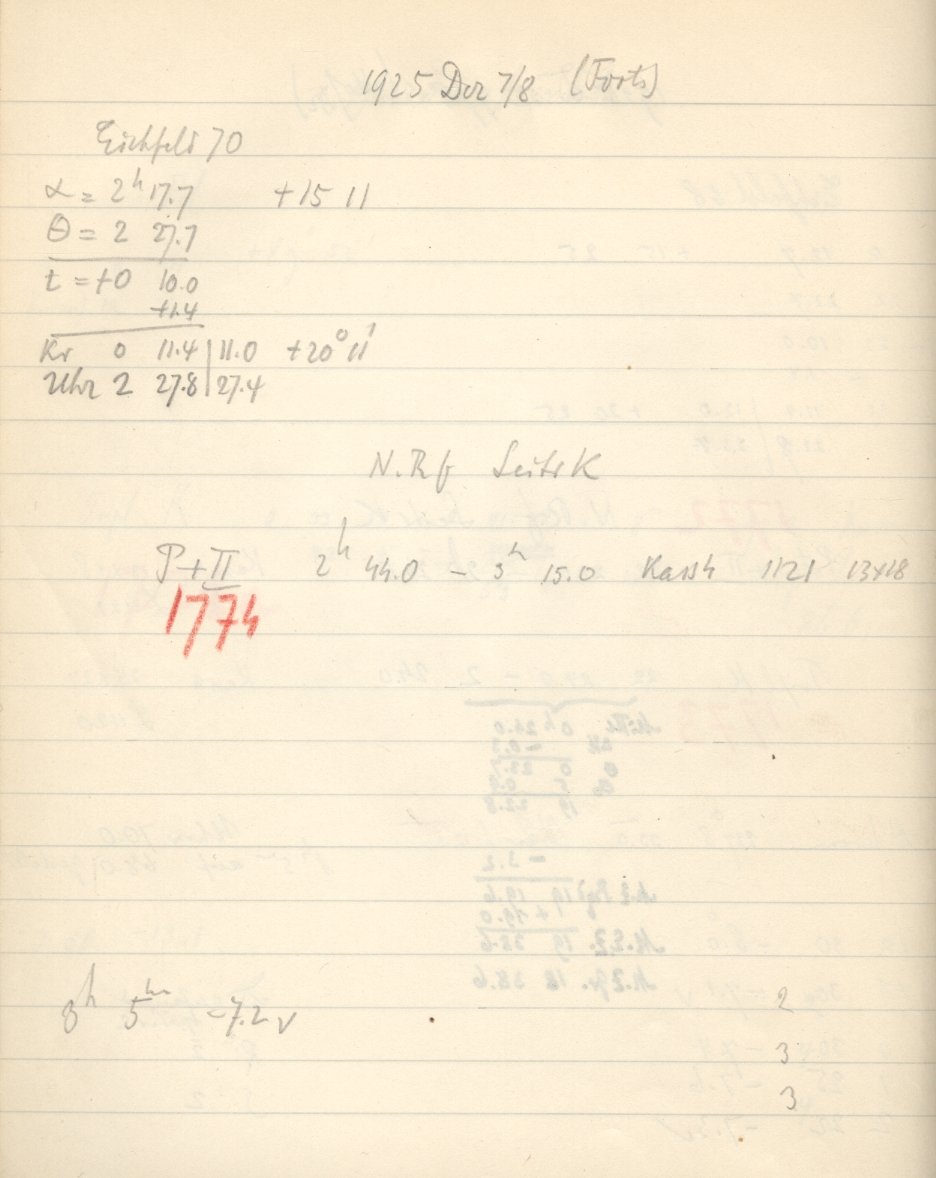 1925 Dez 7/8 (Forts)
Eichfeld 70
α = 2h 17.7 +15 11
Θ = 2 27.7
t = +0 10.0
+1.4
Kr 0 11.4 | 11.0 +20° 11'
Uhr 2 27.8 | 27.4
N. Rf Seite K
P + II 2h 44.0 – 3h 15.0 Kass 4 1121 13x18
1774
8h 5m -7.2 v 2
3
3